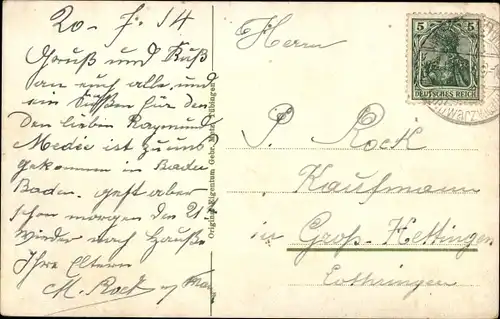 20-7.14
Gruß und Kuß
an euch alle, und
ein Süßen für den
Den lieben Raymund
Medie ist zu uns
gekommen in Baden
Baden. geht aber
schon morgen den 21-
wieder nach Hause
Ihre Eltern
M. Rock u Frau
Original-Eigentum Gebr. Metz, Tübingen
Herrn
P. Rock
Kaufmann
in Groß-Hettingen
Lothringen
5 5
DEUTSCHES REICH